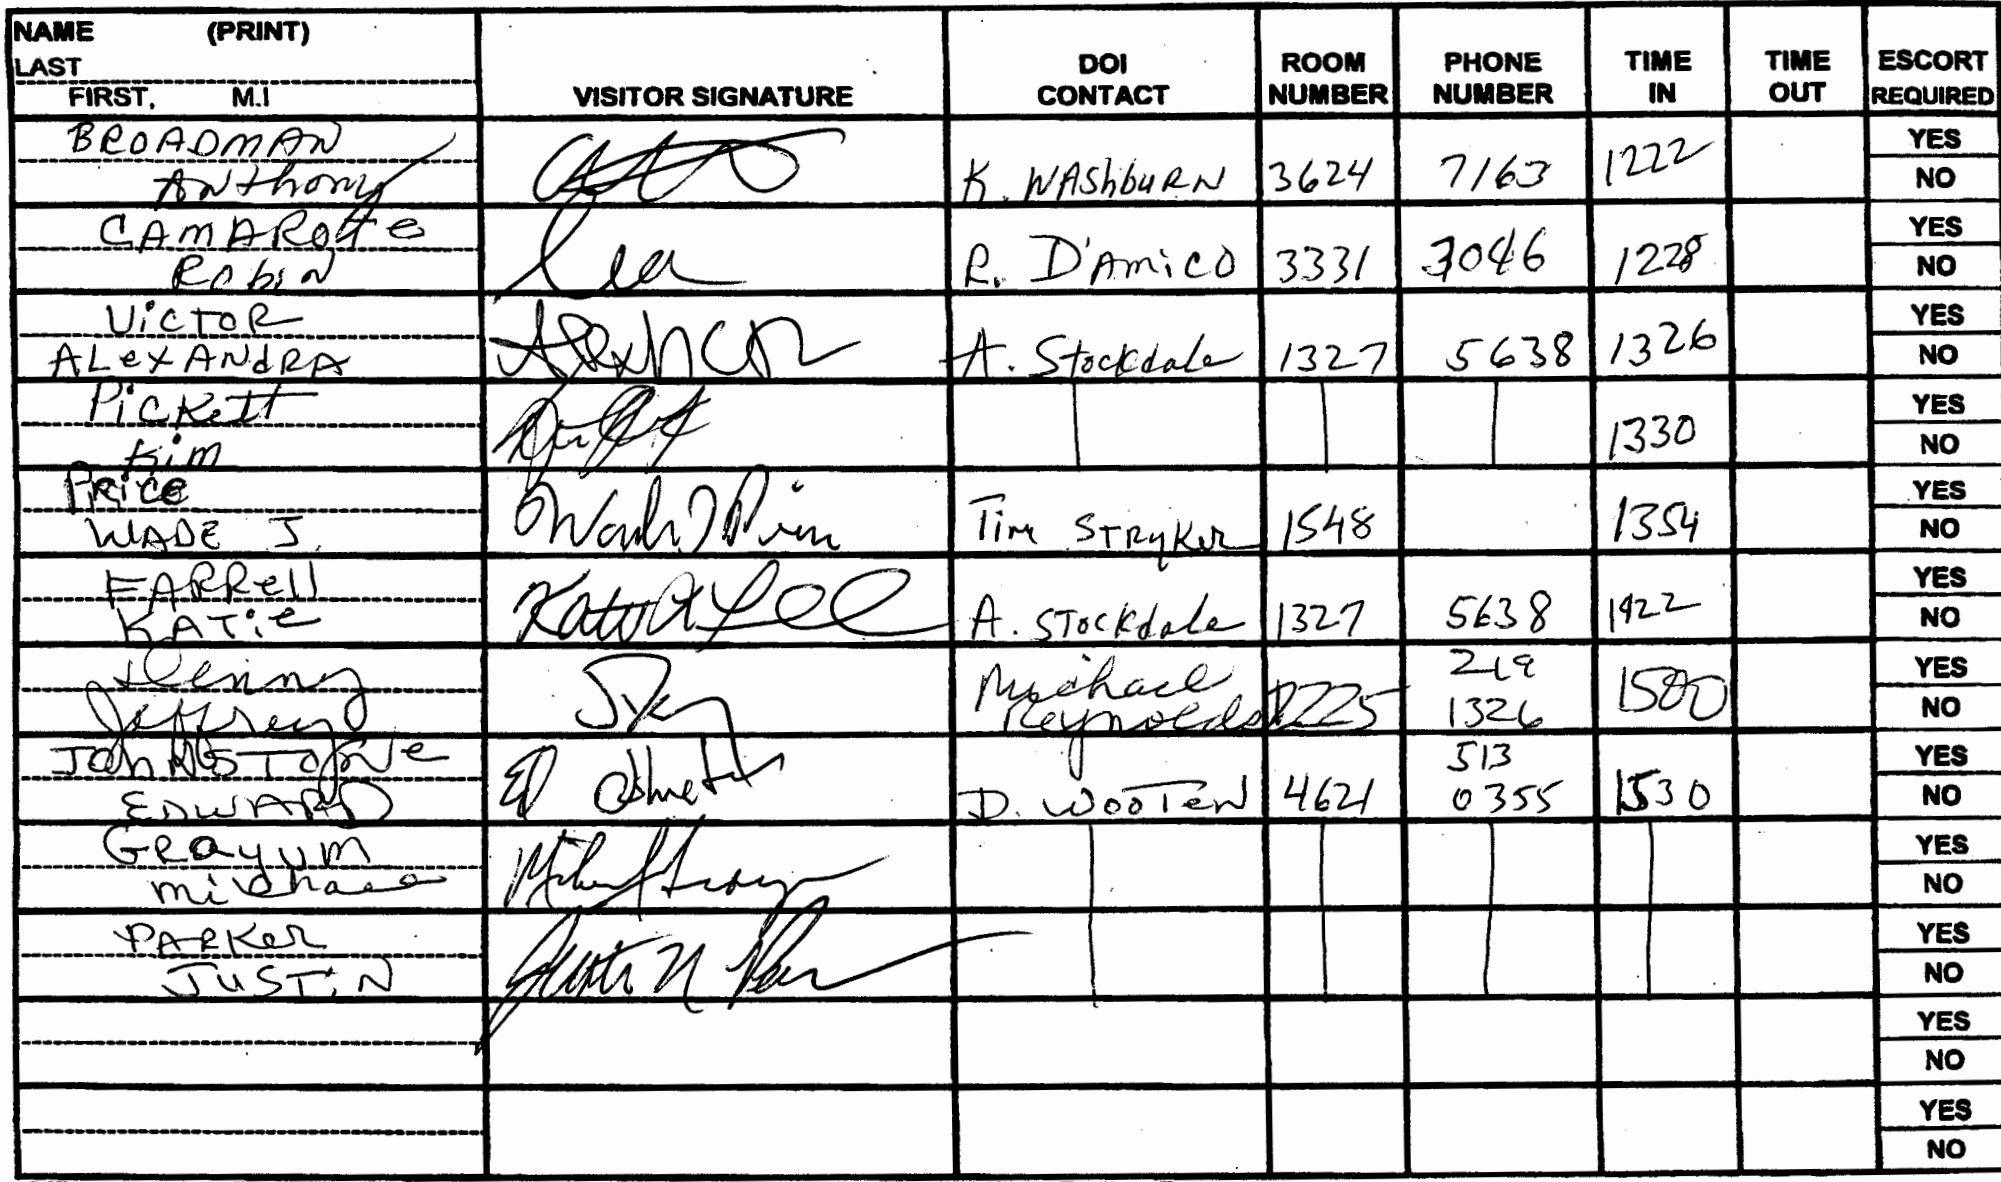 NAME (PRINT)
LAST
FIRST, M.I
VISITOR SIGNATURE
DOI CONTACT
ROOM NUMBER
PHONE NUMBER
TIME IN
TIME OUT
ESCORT REQUIRED
BROADMAN
ANthony
K. WAShbURN 3624 7163 1222
YES
NO
CAMAROtte
RobiN
R. D'AmiCO 3331 3046 1228
YES
NO
ViCTOR
ALexANdRA
A. Stockdale 1327 5638 1326
YES
NO
PiCKett
Kim
1330
YES
NO
PRiCe
WADE J.
Tim STRyKer 1548 1354
YES
NO
FARRell
KATie
A. STockdale 1327 5638 1422
YES
NO
Jeffrey
Michael Reynolds
219
1326
1500
YES
NO
JohNSTONe
EDWARD
Ed
D. WOOTeN 4621
513
0355
1530
YES
NO
GRayum
michael
YES
NO
PARKeR
JUSTiN
YES
NO
YES
NO
YES
NO